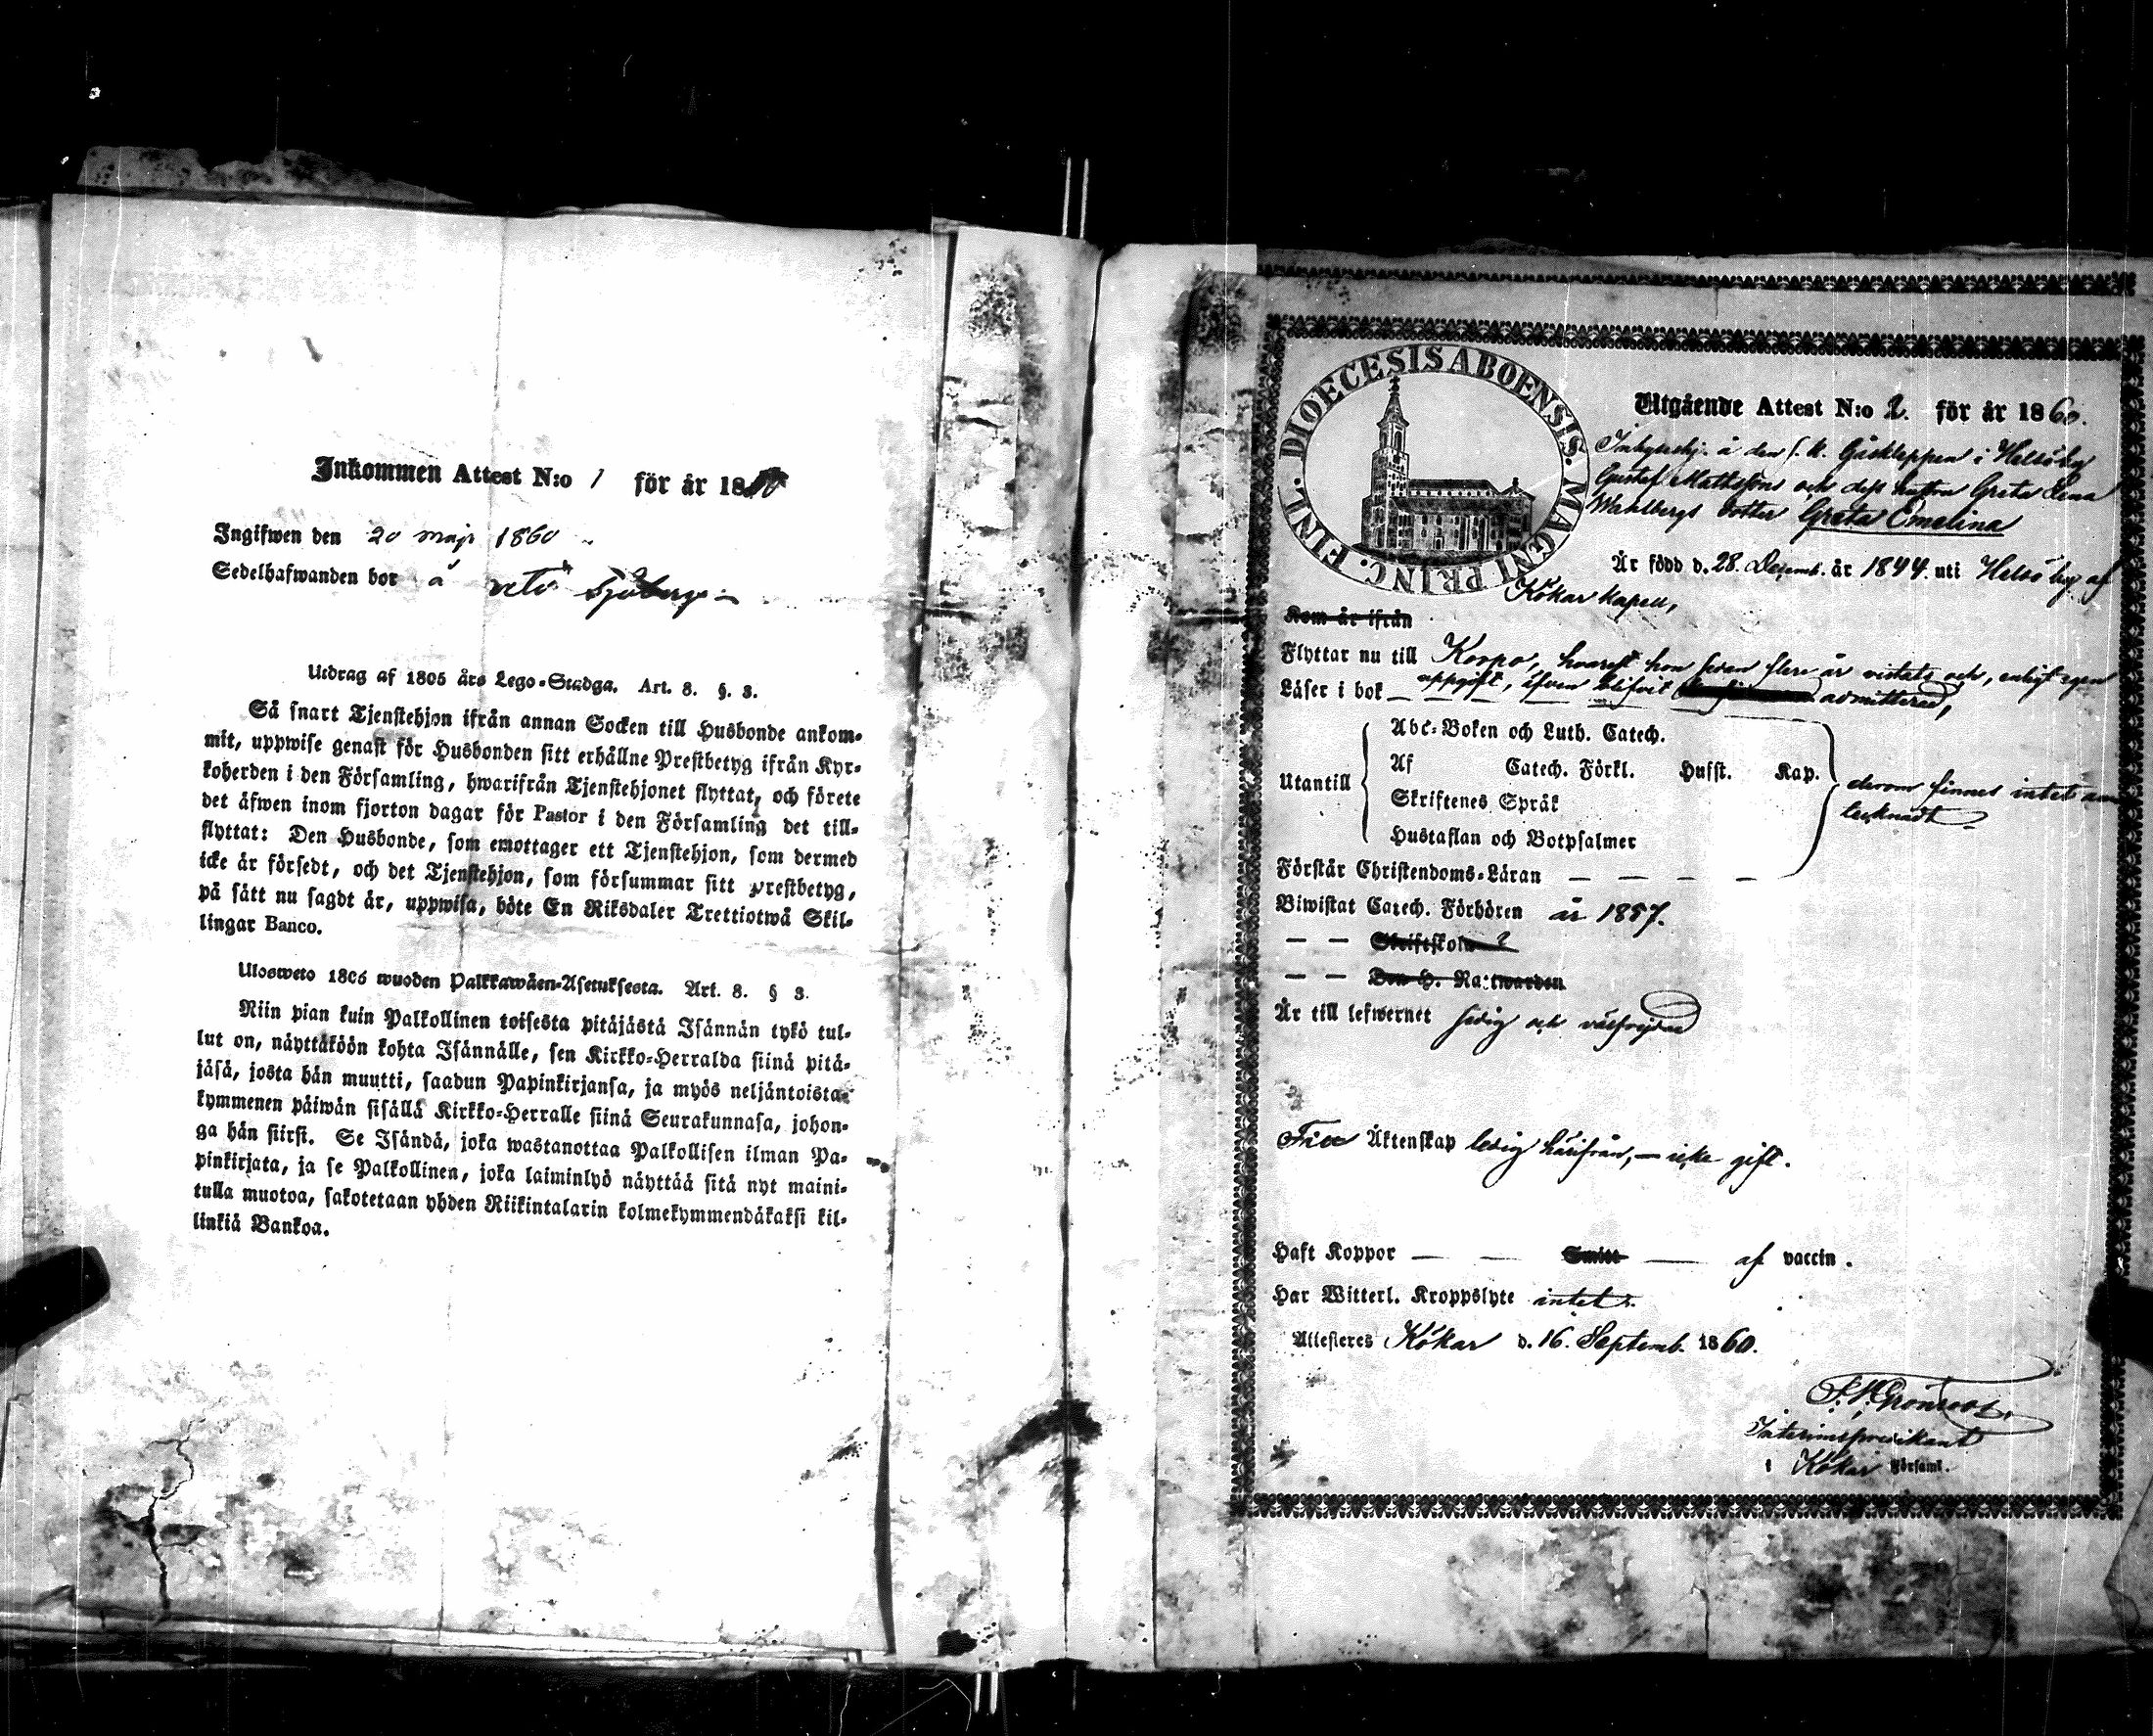 Inkommen Attest N:o 1 för år 18
Ingifwen den 20 maji 1860
Sedelhafwanden bor å
Utdrag af 1805 års Lego-Stadga. Art. 8. §. 3.
Så snart Tjenstehjon ifrån annan Socken till Husbonde ankom-
mit, uppwise genast för Husbonden sitt erhållne Prestbetyg ifrån Kyr-
koherden i den Församling, hwarifrån Tjenstehjonet flyttat, och förete
det äfwen inom fjorton dagar för Pastor i den Församling det till-
flyttat: Den Husbonde, som emottager ett Tjenstehjon, som dermed
icke är försedt, och det Tjenstehjon, som försummar sitt prestbetyg,
på sätt nu sagdt är, uppwisa, böte En Riksdaler Trettiotwå Skil-
lingar Banco.
Ulosweto 1805 wuoden Palkkawäen-Asetuksesta. Art. 8. § 3.
Niin pian kuin Palkollinen toisesta pitäjästä Isännän tykö tul-
lut on, näyttäköön kohta Isännälle, sen Kirkko-Herralda siinä pitä-
jäsä, josta hän muutti, saadun Papinkirjansa, ja myös neljäntoista-
kymmenen päiwän sisällä Kirkko-Herralle siinä Seurakunnasa, johon-
ga hän siirsi. Se Isändä, joka wastanottaa Palkollisen ilman Pa-
pinkirjata, ja se Palkollinen, joka laiminlyö näyttää sitä nyt maini-
tulla muotoa, sakotetaan yhden Riikintalarin kolmekymmendäkaksi kil-
linkiä Bankoa.
FINL. DIOECESIS ABOENSIS. MAGNI PRINC.
Utgående Attest N:o 2. för år 1860.
å den s. k. i Helsöby
Gustaf Mathssons och dess hustru Greta Lena
Wahlbergs dotter Greta Emelina
Är född d. 28. Decemb. år 1844. uti Helsöby af
Kökar kapell,
Kom år ifrån
Flyttar nu till Korpo, hvarest hon sedan flere år vistats och, enligt egen
uppgift, äfven blifvit admitterad,
Läser i bok
Abc-Boken och Luth. Catech.
Utantill Af Catech. Förkl. Husst. Kap. derom finnes intet an-
Skriftenes Språk tecknadt
Hustaflan och Botpsalmer
Förstår Christendoms-Läran
Biwistat Catech. Förhören år 1857.
— — Skriftskola
— — Den H. Nattwarden
Är till lefwernet sedig och välfrejdad
Till Äktenskap ledig härifrån, — icke gift.
Haft Koppor — — Smitt — af vaccin.
Har Witterl. Kroppslyte intet.
Attesteres Kökar d. 16. Septemb. 1860.
Grönroos
Interimspredikant
i Kökar Församl.